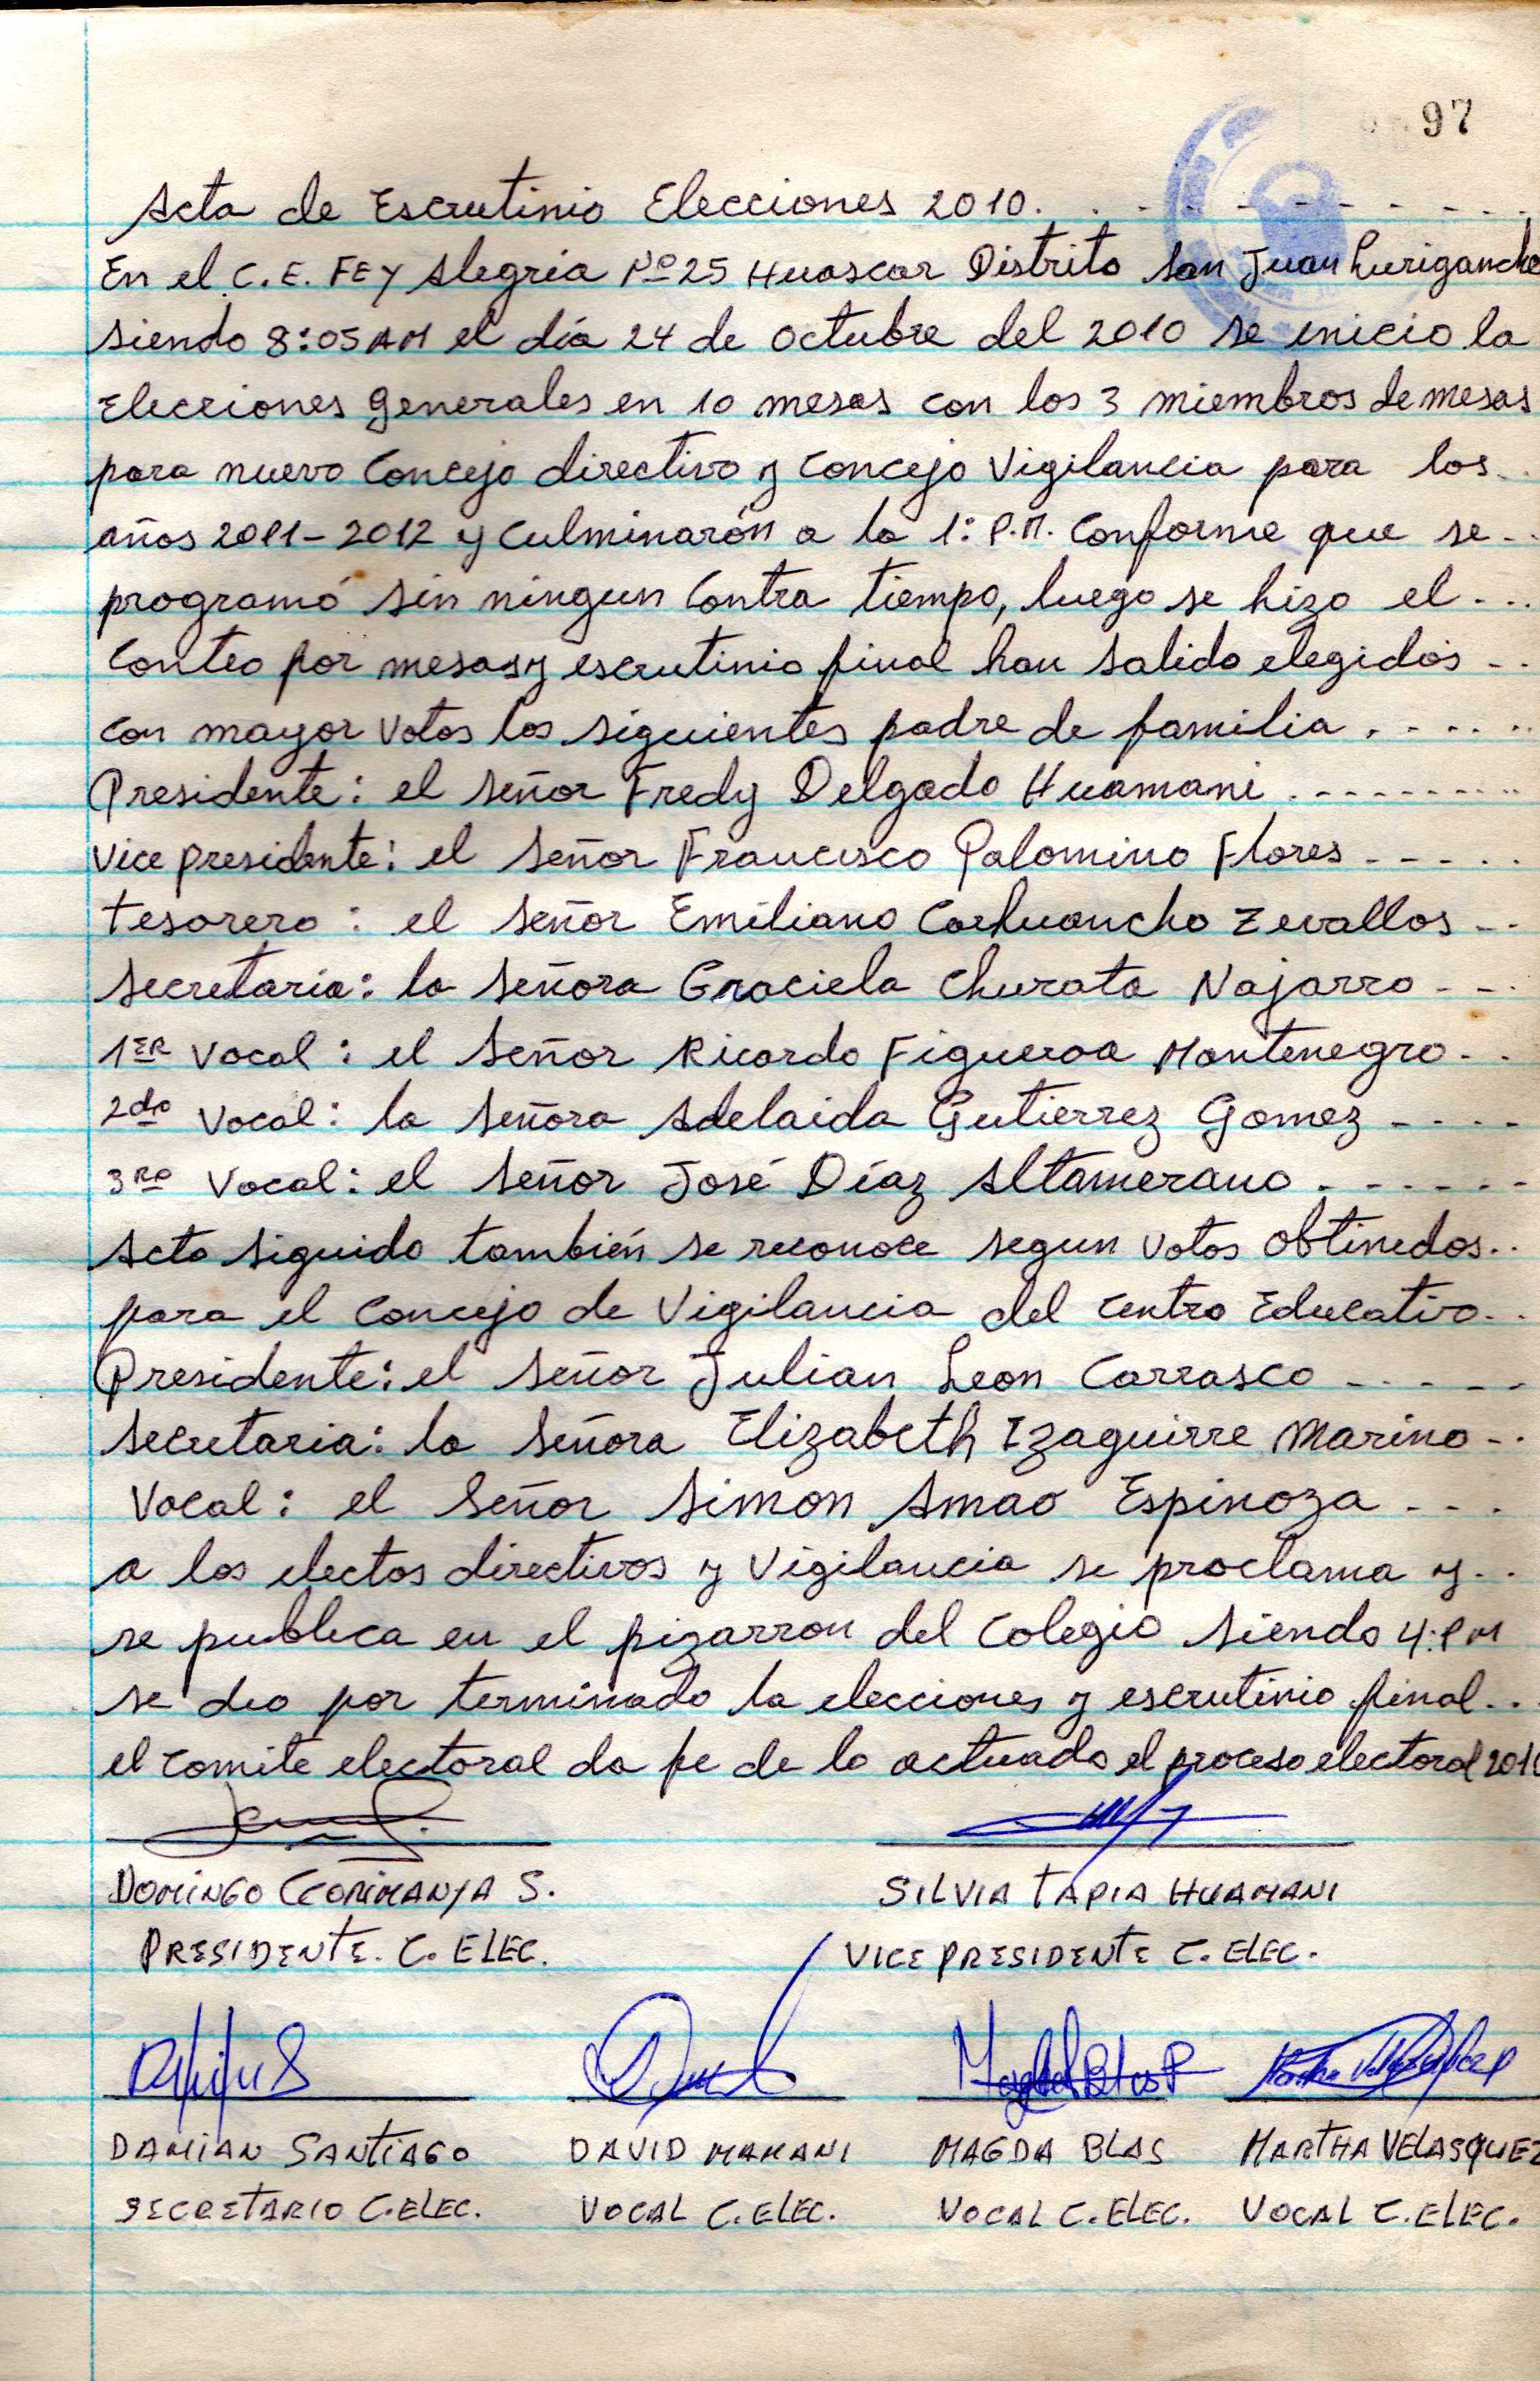 97
Acta de Escrutinio Elecciones 2010. . . - - - - - - - - - . . .
En el C.E. FE Y Alegria Nº 25 Huascar Distrito San Juan Lurigancho
siendo 8:05 AM el día 24 de octubre del 2010 se inicio la
Elecciones generales en 10 mesas con los 3 miembros de mesas
para nuevo Concejo directivo y Concejo Vigilancia para los..
años 2011-2012 y culminarón a la 1: P.M. Conforme que se - .
programó sin ningun Contra tiempo, luego se hizo el - . .
Conteo por mesas y escrutinio final han salido elegidos - .
con mayor votos los siguientes padre de familia . - - - . .
Presidente: el señor Fredy Delgado Huamani . - - - - - - - - .
Vice presidente: el señor Francisco Palomino Flores - - - . .
tesorero: el señor Emiliano Carhuancho Zevallos - .
secretaria: la señora Graciela Churata Najarro - - .
1ER Vocal: el señor Ricardo Figueroa Montenegro - .
2do Vocal: la señora Adelaida Gutierrez Gomez - - - -
3ro Vocal: el señor José Díaz Altamerano . - - - - -
Acto siguido también se reconoce segun votos obtinedos..
para el Concejo de Vigilancia del Centro Educativo..
Presidente: el señor Julian Leon Carrasco - - - - -
secretaria: la señora Elizabeth Izaguirre Marino - .
Vocal: el señor Simon Amao Espinoza - - .
a los electos directivos y Vigilancia se proclama y . .
se publica en el pizarron del Colegio siendo 4: PM
se dio por terminado la elecciones y escrutinio final . .
el comite electoral da fe de lo actuado el proceso electoral 2010
DOMINGO CCORIMANYA S. SILVIA TAPIA HUAMANI
PRESIDENTE. C. ELEC. VICE PRESIDENTE C. ELEC.
Magda Blas P
DAMIAN SANTIAGO DAVID MAMANI MAGDA BLAS MARTHA VELASQUEZ
SECRETARIO C.ELEC. VOCAL C.ELEC. VOCAL C.ELEC. VOCAL C.ELEC.